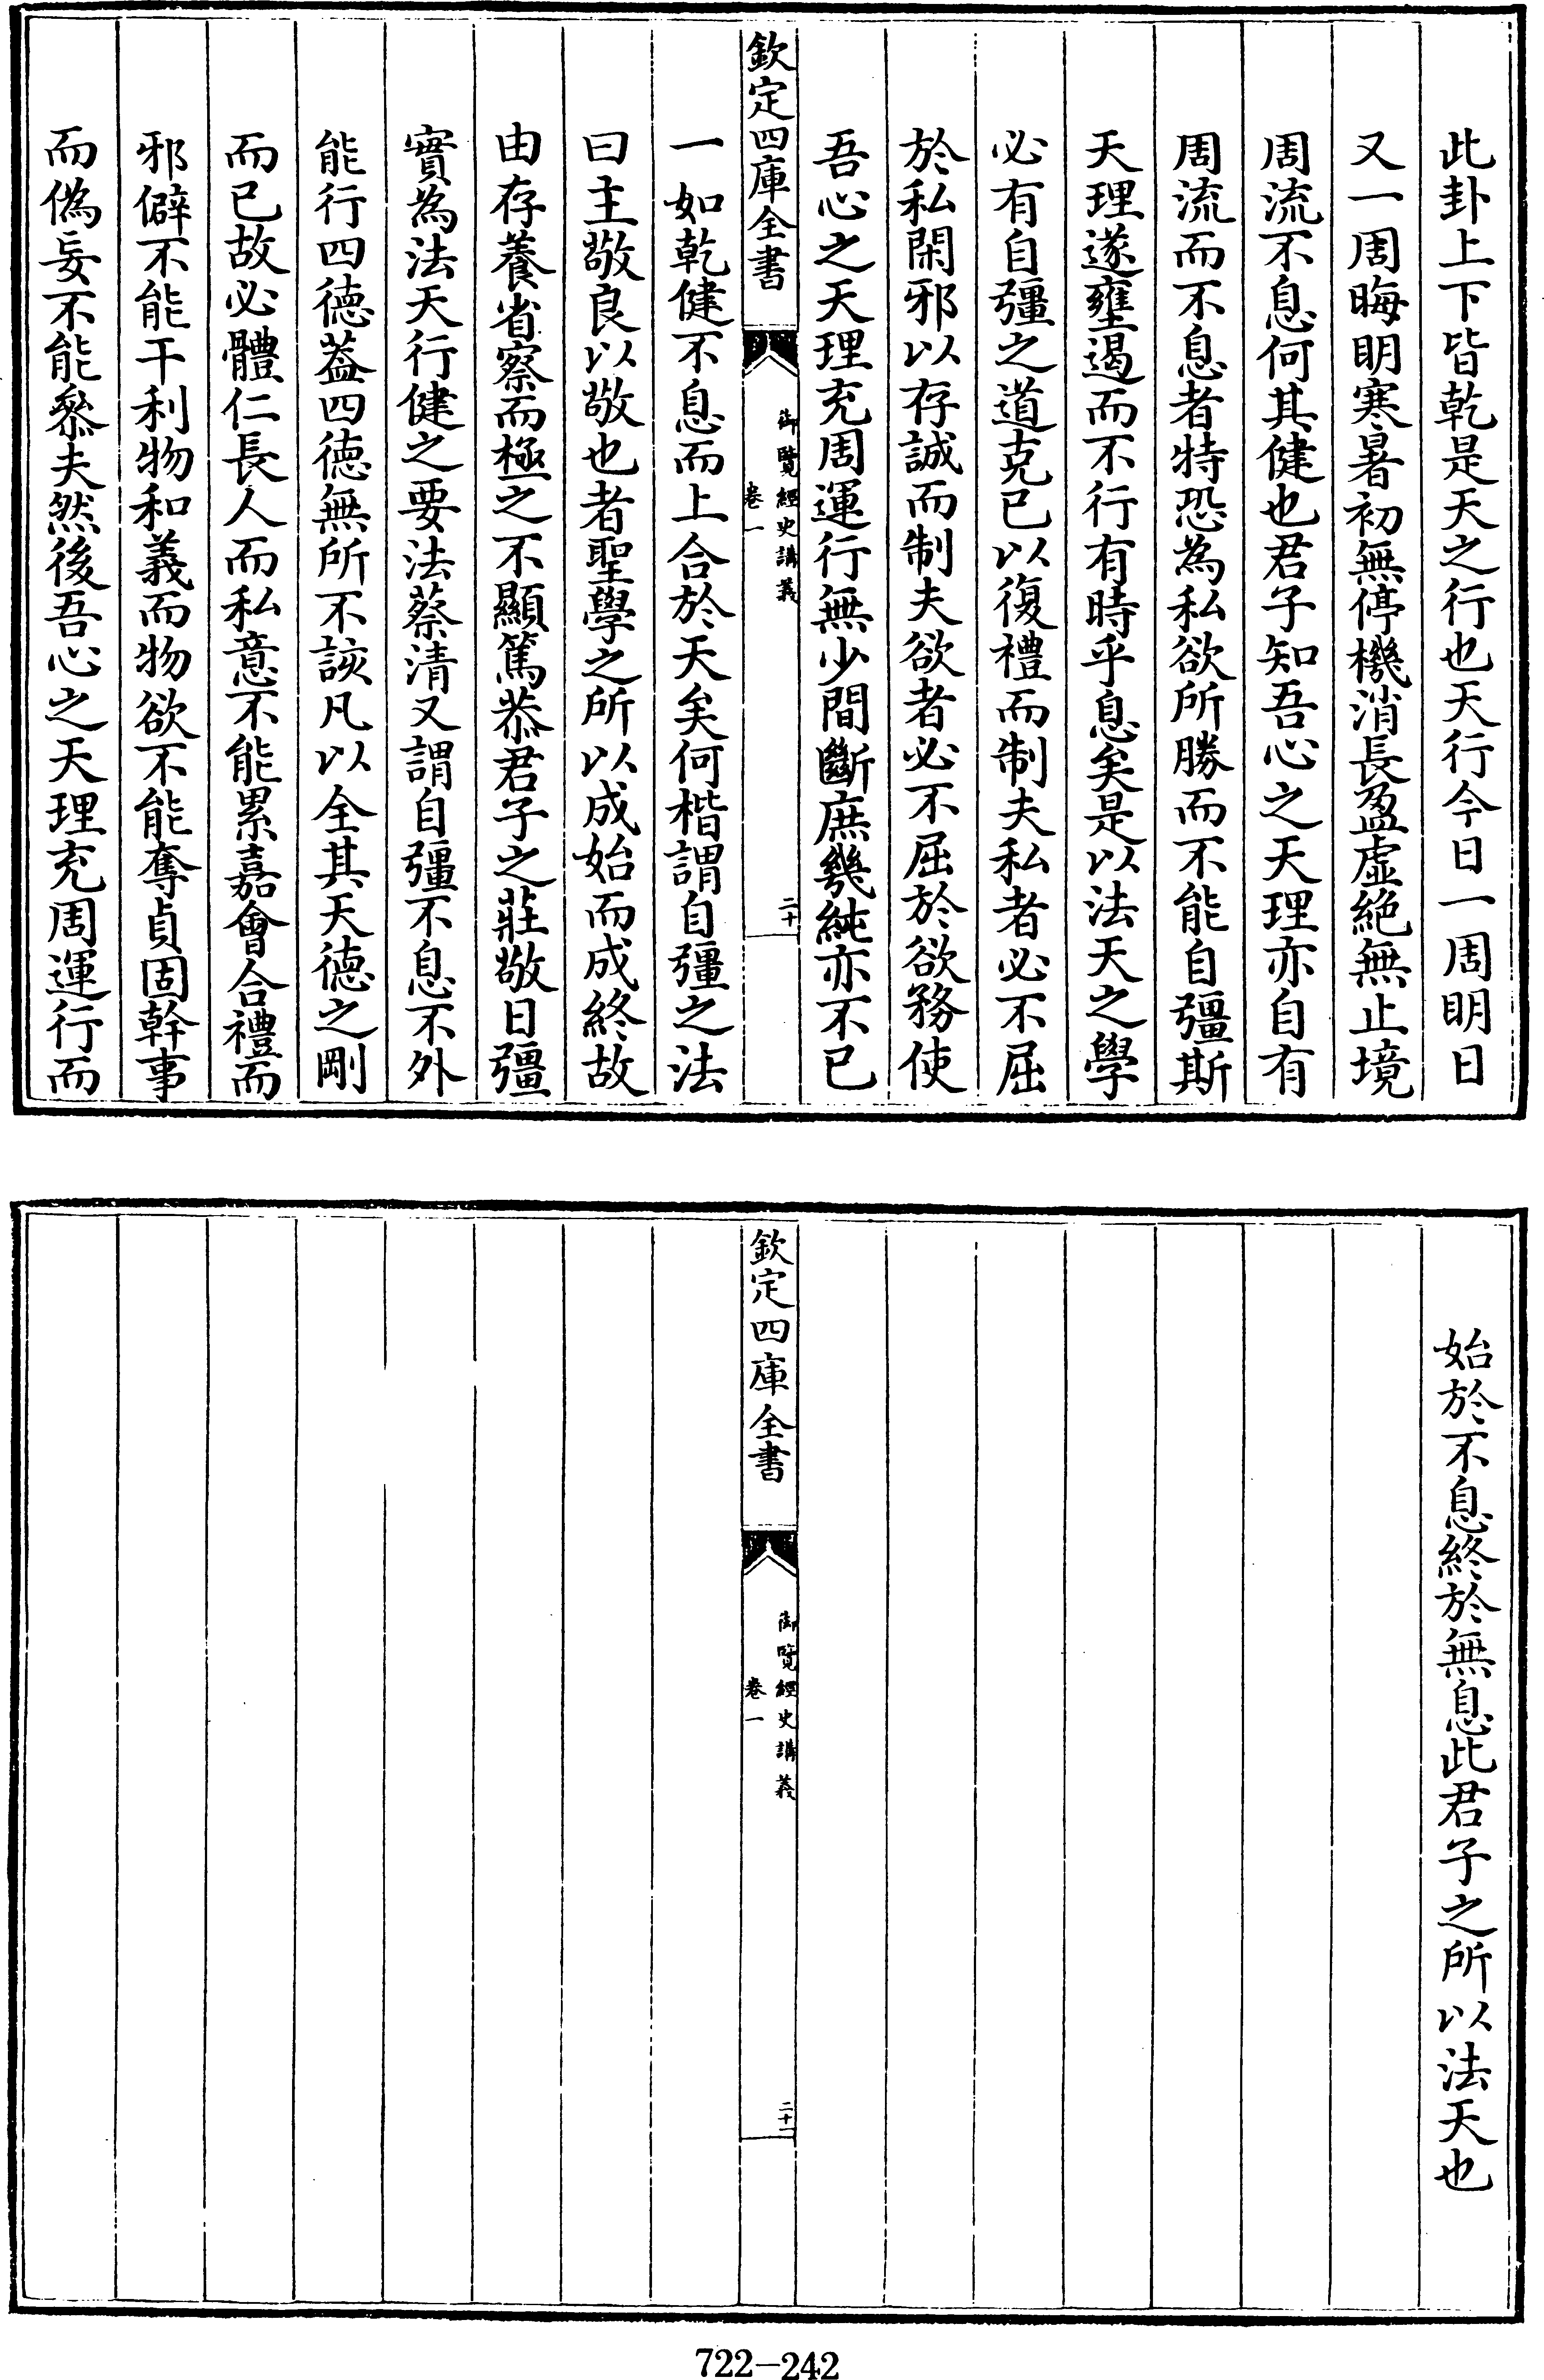 此卦上下皆乾是天之行也天行今日一周明日
又一周晦明寒暑初無停機消長盈虛絶無止境
周流不息何其健也君子知吾心之天理亦自有
周流而不息者特恐為私欲所勝而不能自彊斯
天理遂壅遏而不行有時乎息矣是以法天之學
必有自彊之道克已以復禮而制夫私者必不屈
於私閑邪以存誠而制夫欲者必不屈於欲務使
吾心之天理充周運行無少間斷庶幾純亦不已
欽定四庫全書
御覽經史講義
卷一
二十
一如乾健不息而上合於天矣何楷謂自彊之法
曰主敬良以敬也者聖學之所以成始而成終故
由存養省察而極之不顯篤恭君子之莊敬日彊
實為法天行健之要法蔡清又謂自彊不息不外
能行四德葢四德無所不該凡以全其天德之剛
而已故必體仁長人而私意不能累嘉會合禮而
邪僻不能干利物和義而物欲不能奪貞固幹事
而偽妄不能叅夫然後吾心之天理充周運行而
始於不息終於無息此君子之所以法天也
欽定四庫全書
御覽經史講義
卷一
二十一
722-242